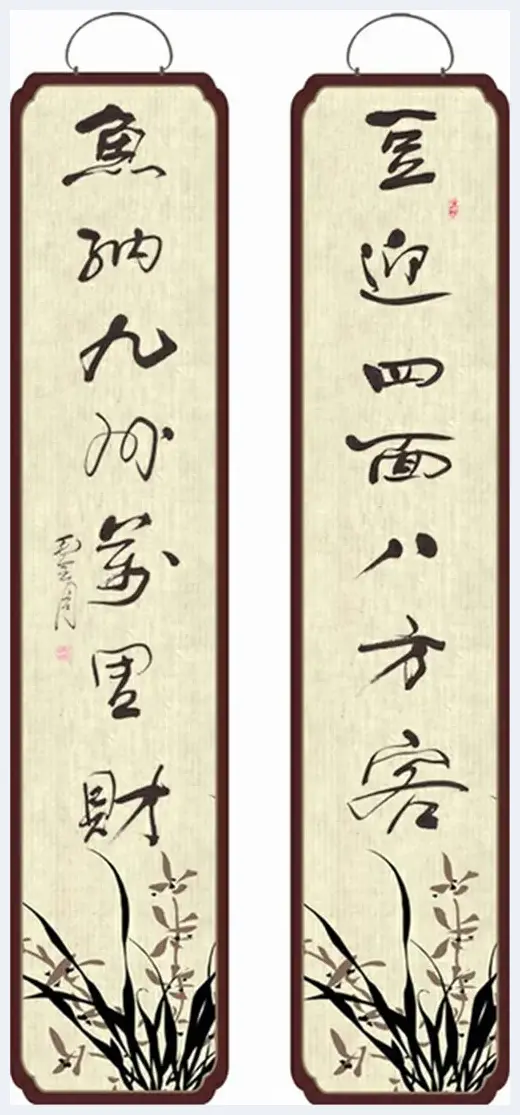 豆迎四面八方客
魚納九州萬里財